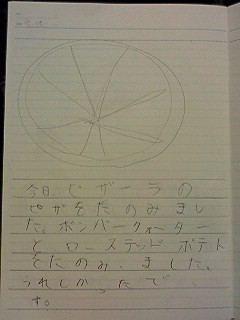 今日、ピザーラの
ピザをたのみまし
た。ボンバークォーター
と ローステッドポテト
をたのみ、ました。
うれしかったで
す。